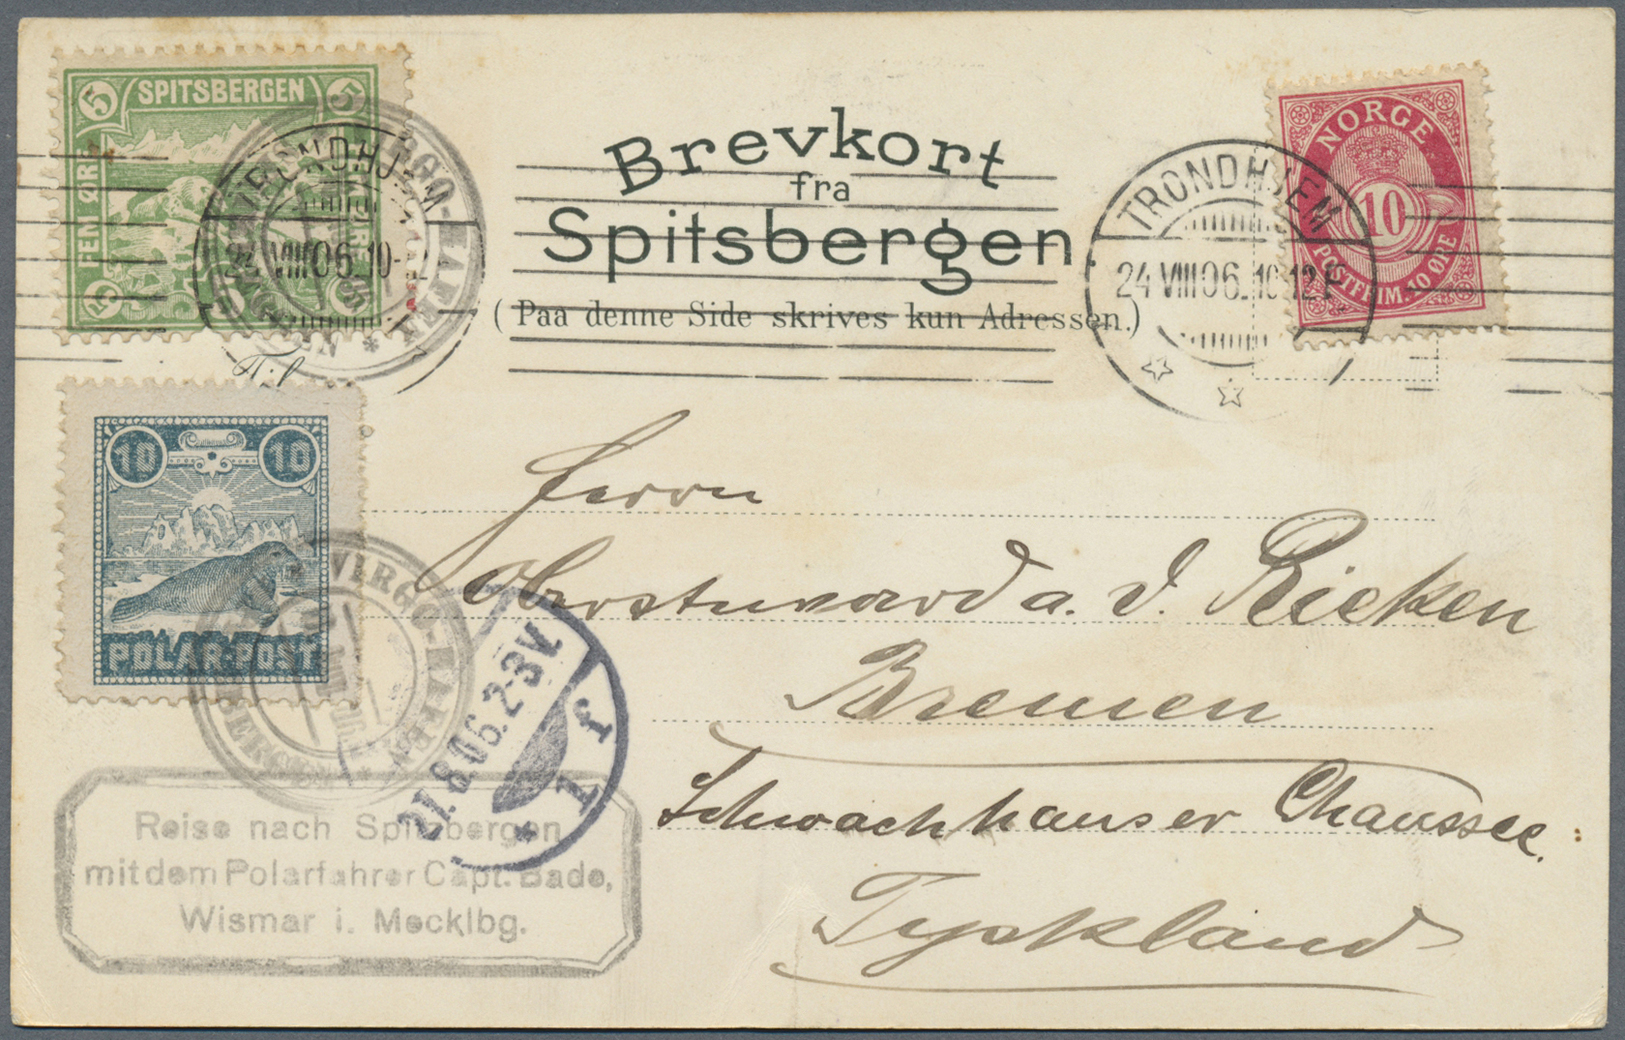 5 SPITSBERGEN 5
FEM ØRE
NORGE
10
POSTFRIM. 10 ØRE
TRONDHJEM
24 VIII 06. 10-12
TRONDHJEM
24 VIII 06. 10-12 F
Brevkort
fra
Spitsbergen
(Paa denne Side skrives kun Adressen.)
Til
10 10
POLAR-POST
VIRGO-HAFEN
27.8.06. 2-3V.
* 1 f
Herrn
Oberstuward a. D. Rieken
Bremen
Schwachhauser Chaussee.
Tyskland
Reise nach Spitsbergen
mit dem Polarfahrer Capt. Bade,
Wismar i. Mecklbg.